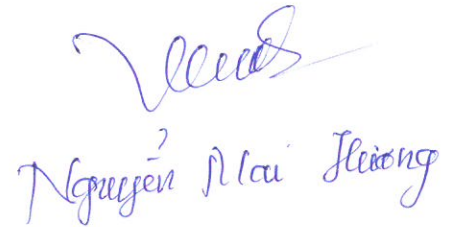 Nguyễn Mai Hương